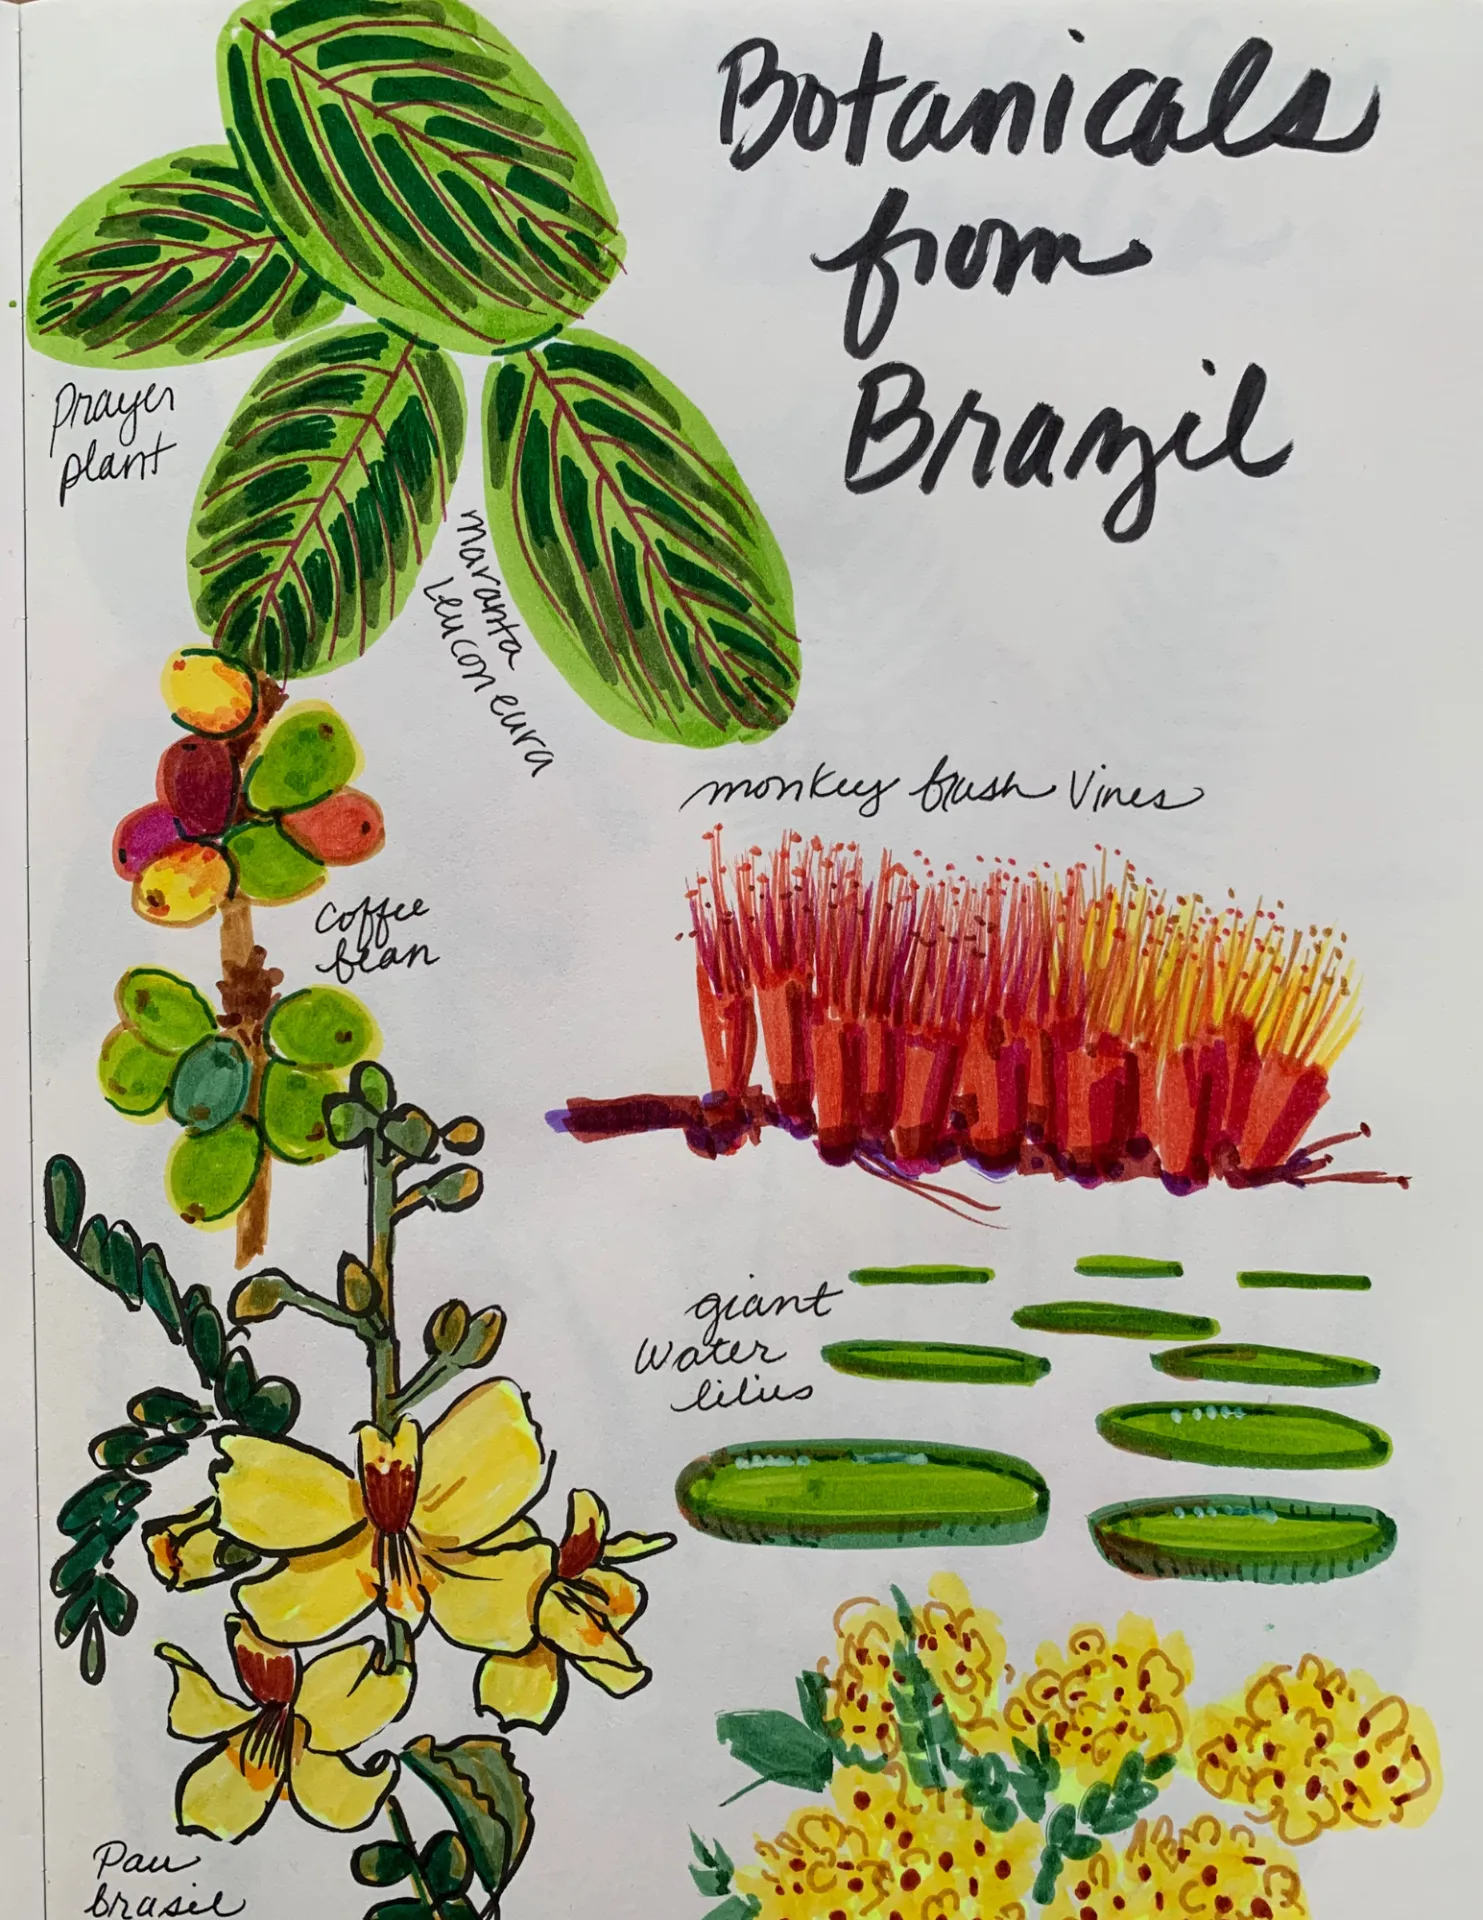 Botanicals
from
Brazil
Prayer
plant
maranta
Leuconeura
monkey brush Vines
coffee
bean
giant
water
lilies
Pau
brasil